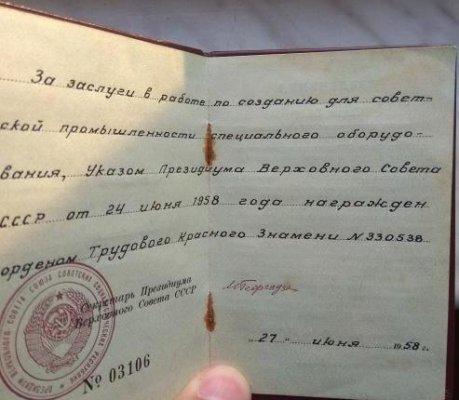 За заслуги в работе по созданию для совет-
ской промышленности специального оборудо-
вания, Указом Президиума Верховного Совета
СССР от 24 июня 1958 года награжден
орденом Трудового Красного Знамени N 330538
Секретарь Президиума
Верховного Совета СССР
№ 03106
27 июня 1958 г.